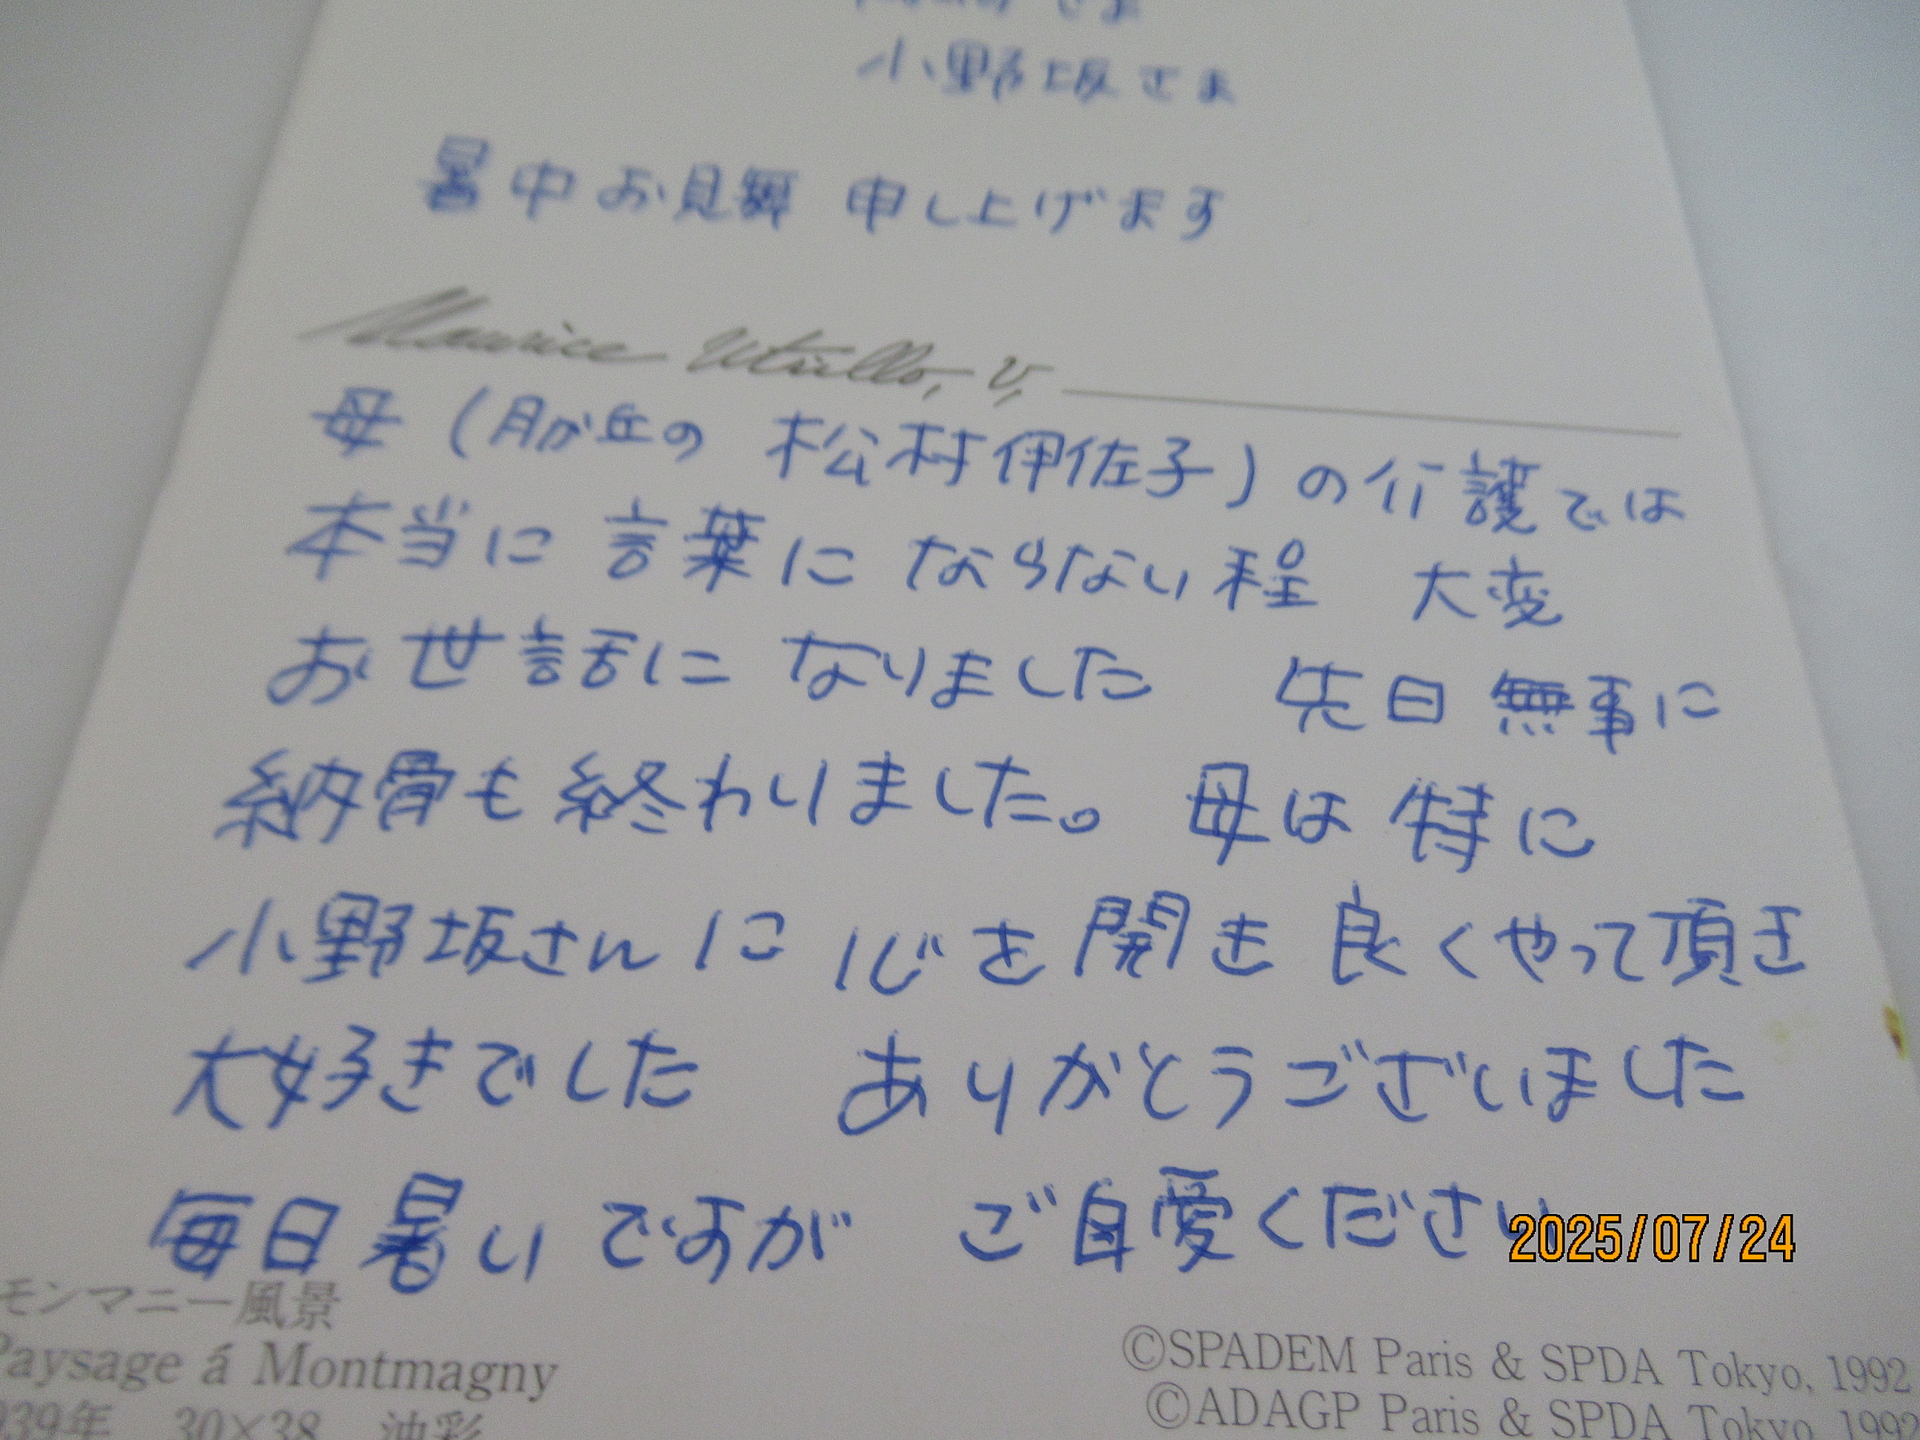 さま
小野坂さま
暑中お見舞 申し上げます
Maurice Utrillo, V,
母 (月が丘の 松村伊佐子) の介護では
本当に 言葉に ならない程 大変
お世話に なりました 先日 無事に
納骨も終わりました。 母は特に
小野坂さんに 心を開き 良くやって頂き
大好きでした ありがとうございました
毎日暑いですが ご自愛ください
2025/07/24
モンマニー風景
Paysage á Montmagny
939年 30×38 油彩
©SPADEM Paris & SPDA Tokyo, 1992
©ADAGP Paris & SPDA Tokyo, 1992